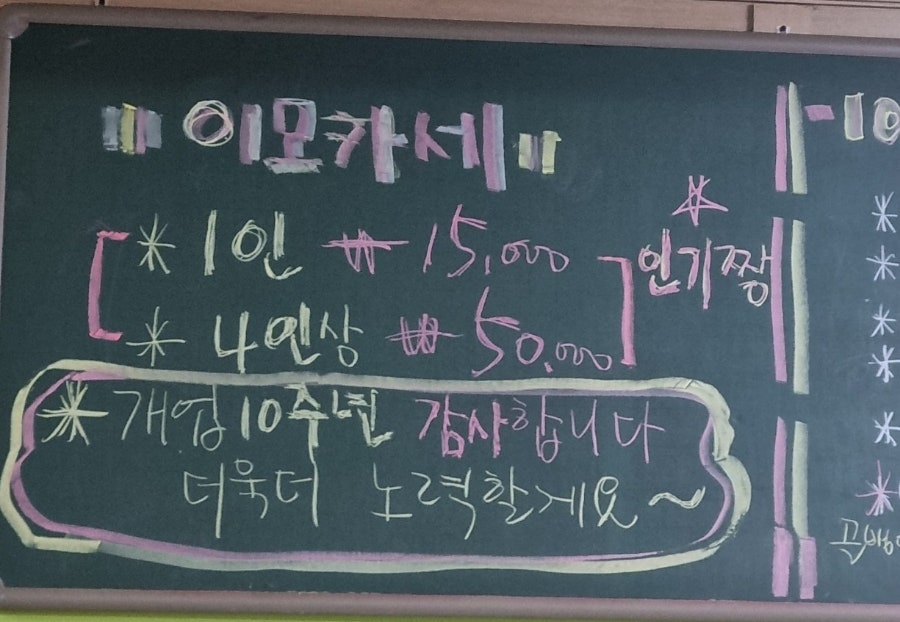 "이모카세"
* 1인 ₩ 15,000
* 4인상 ₩ 50,000
☆
인기짱
* 개업10주년 감사합니다
더욱더 노력할게요~